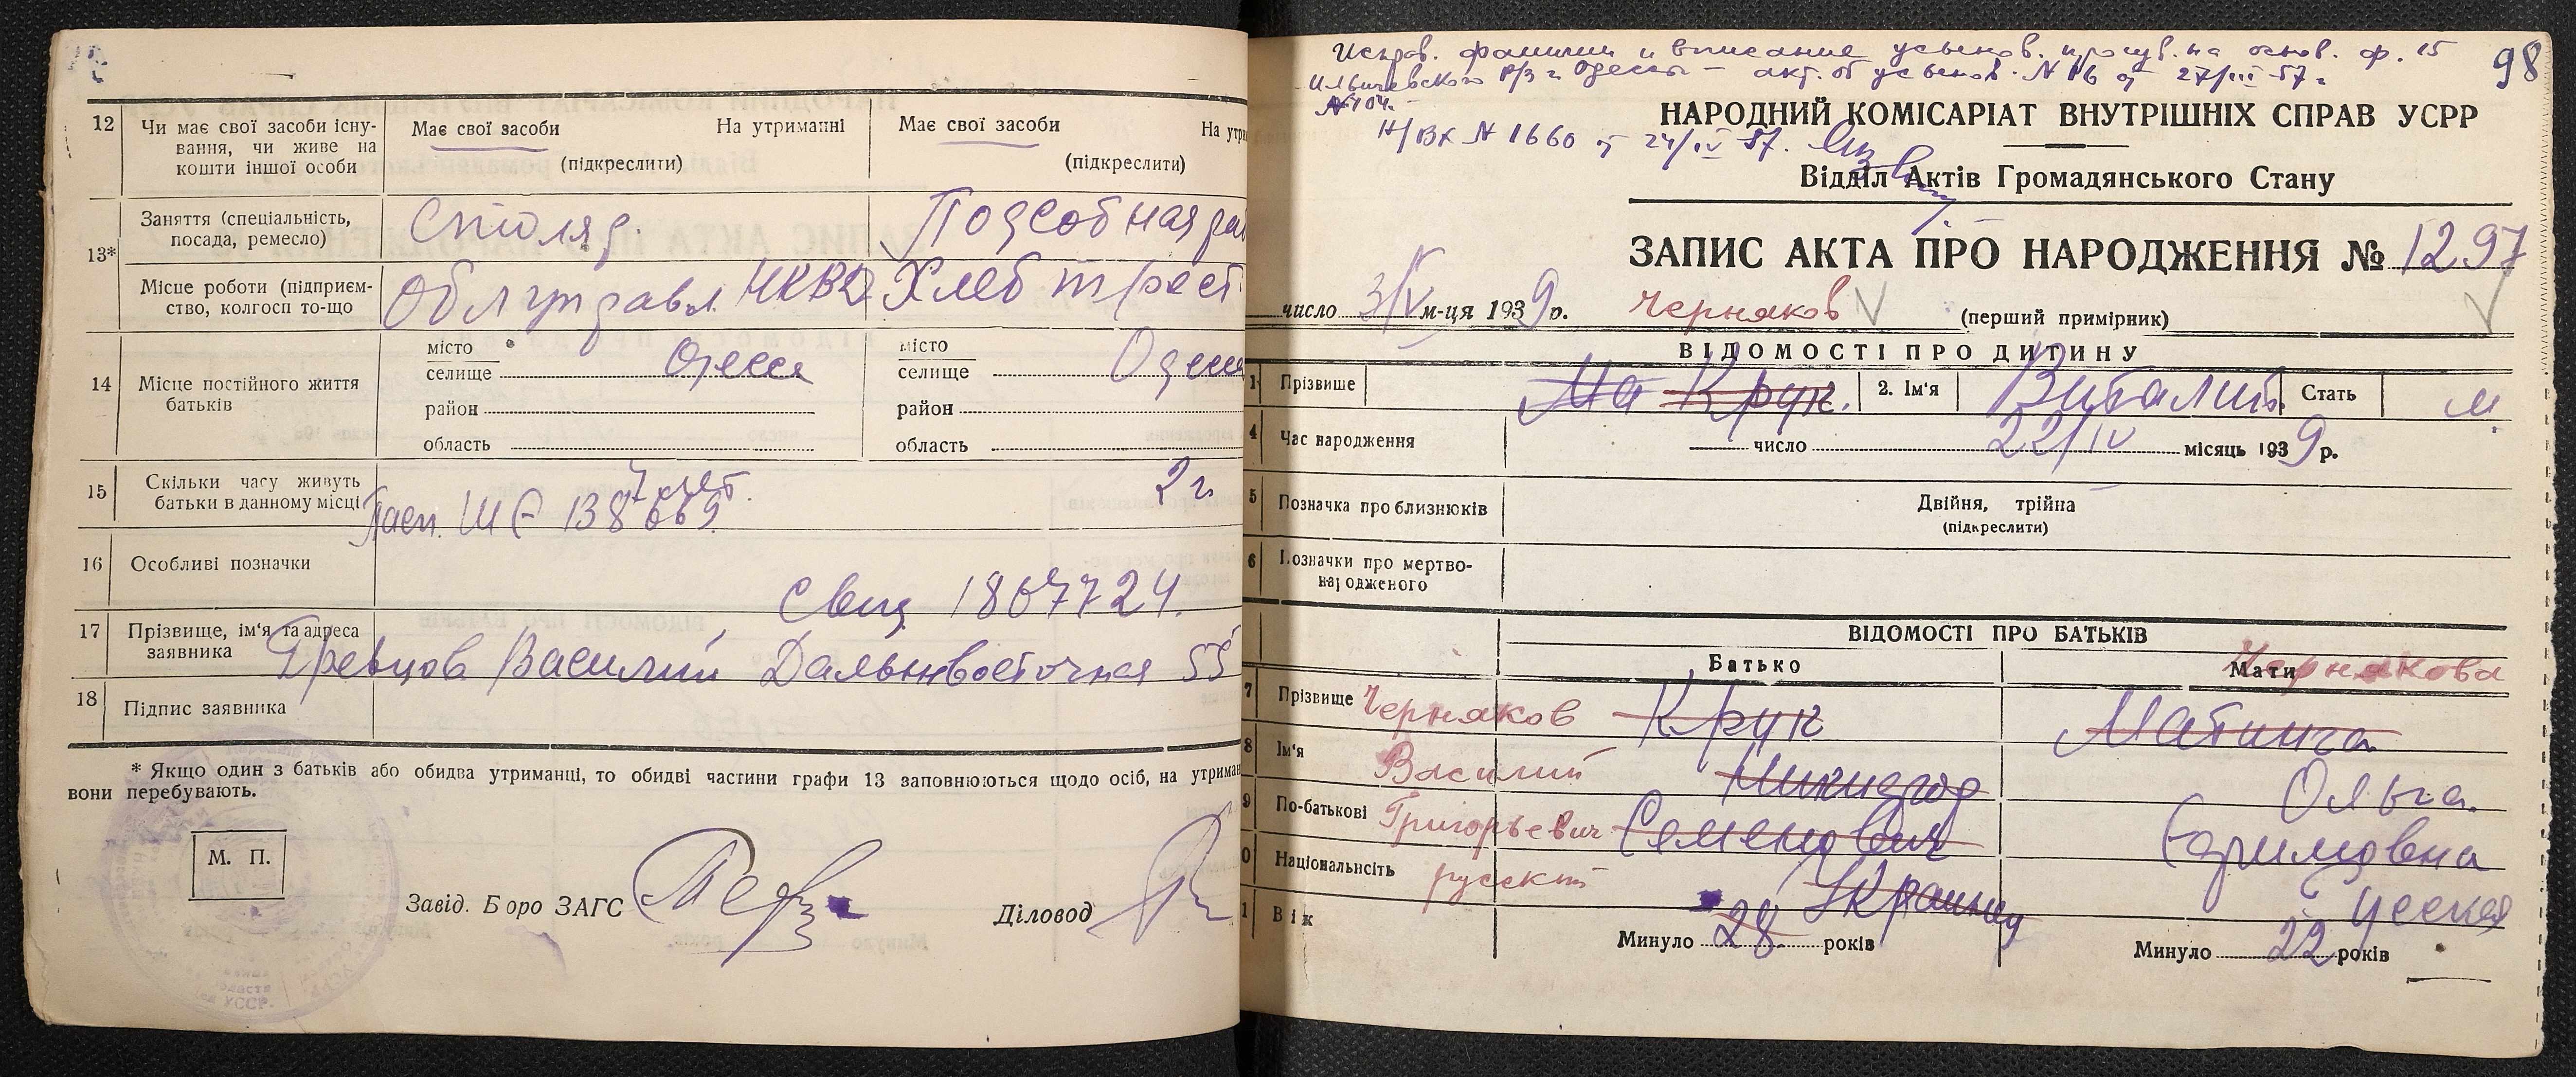 12 Чи має свої засоби існу-
вання, чи живе на
кошти іншої особи
Має свої засоби На утриманні
(підкреслити)
Має свої засоби На утри
(підкреслити)
13* Заняття (спеціальність,
посада, ремесло)
Столяр. Подсобная раб
Місце роботи (підприєм-
ство, колгосп то-що
Облуправл. НКВД Хлеб трест
14 Місце постійного життя
батьків
місто
селище Одесса
район
область
місто
селище Одесса
район
область
15 Скільки часу живуть
батьки в данному місці
7 лет. 2 г.
Пасп. 138669
16 Особливі позначки
Свид 1867724.
17 Прізвище, ім'я та адреса
заявника
Гревцов Василий Дальневосточная 55
18 Підпис заявника
* Якщо один з батьків або обидва утриманці, то обидві частини графи 13 заповнюються щодо осіб, на утриман
вони перебувають.
М. П.
Завід. Бюро ЗАГС Діловод
Исправ. фамилии и вписание усынов. произв. на основ. ф. 15
Ильичевского Р/З г. Одессы – акт. об усынов. № 16 от 27/III-57 г.
№ 104.
Н/Вх № 1660 от 24/IV 57.
98
НАРОДНИЙ КОМІСАРІАТ ВНУТРІШНІХ СПРАВ УСРР
Відділ Актів Громадянського Стану
ЗАПИС АКТА ПРО НАРОДЖЕННЯ № 1297
число 3/V м-ця 1939 р. Черняков V (перший примірник)
ВІДОМОСТІ ПРО ДИТИНУ
1 Прізвище Ма Крук. 2. Ім'я Виталий Стать м
4 Час народження число 22/IV місяць 1939 р.
5 Позначка про близнюків Двійня, трійна
(підкреслити)
6 Позначки про мертво-
народженого
ВІДОМОСТІ ПРО БАТЬКІВ
Батько Мати Чернякова
7 Прізвище Черняков Крук
8 Ім'я Василий Ольга
9 По-батькові Григорьевич Семенович Ефимовна
0 Національність русский Украинец русская
1 Вік Минуло 28 років Минуло 22 років